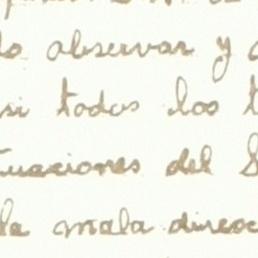 observar y
si todos los
tuaciones del
la mala direc